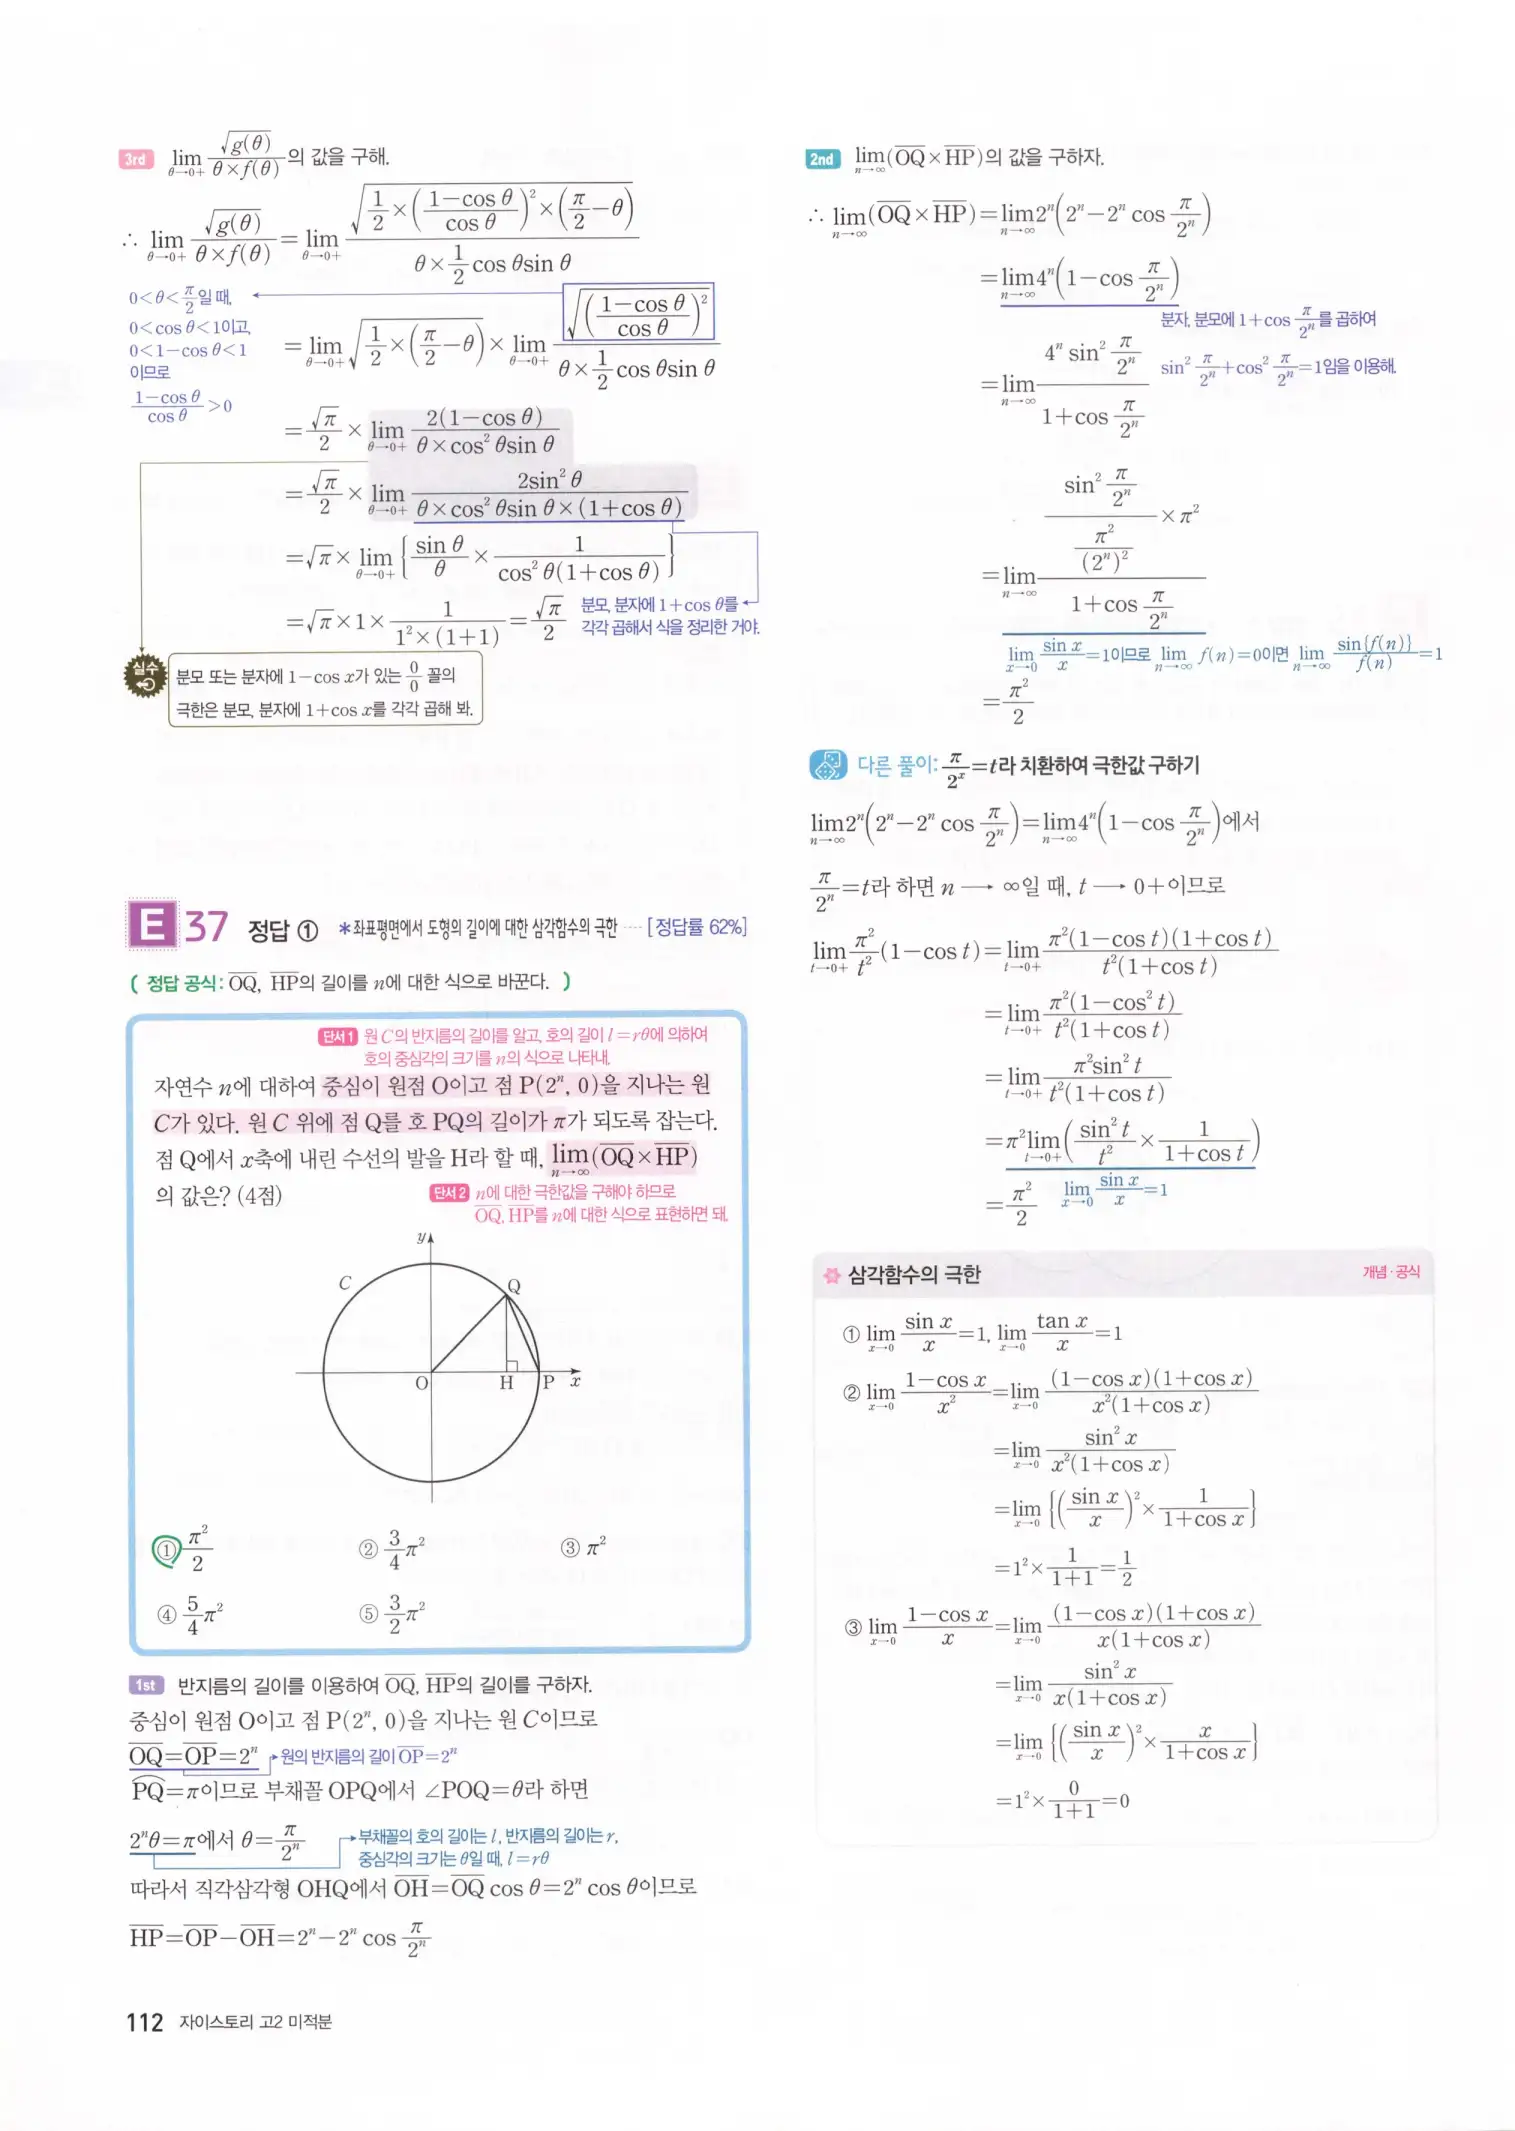 3rd lim_{θ→0+} √g(θ) / (θ×f(θ)) 의 값을 구해.
∴ lim_{θ→0+} √g(θ) / (θ×f(θ)) = lim_{θ→0+} √(1/2×((1−cos θ)/cos θ)²×(π/2−θ)) / (θ×1/2 cos θsin θ)
0<θ<π/2일 때,
0<cos θ<1이고,
0<1−cos θ<1
이므로
(1−cos θ)/cos θ >0
= lim_{θ→0+} √(1/2×(π/2−θ)) × lim_{θ→0+} √(((1−cos θ)/cos θ)²) / (θ×1/2 cos θsin θ)
= √π/2 × lim_{θ→0+} 2(1−cos θ) / (θ×cos² θsin θ)
= √π/2 × lim_{θ→0+} 2sin² θ / (θ×cos² θsin θ×(1+cos θ))
=√π× lim_{θ→0+} {sin θ/θ × 1/(cos² θ(1+cos θ))}
=√π×1× 1/(1²×(1+1)) = √π/2
분모, 분자에 1+cos θ를
각각 곱해서 식을 정리한 거야.
실수
분모 또는 분자에 1−cos x가 있는 0/0 꼴의
극한은 분모, 분자에 1+cos x를 각각 곱해 봐.
E 37 정답 ① *좌표평면에서 도형의 길이에 대한 삼각함수의 극한 ···· [정답률 62%]
( 정답 공식: OQ, HP의 길이를 n에 대한 식으로 바꾼다. )
단서1 원 C의 반지름의 길이를 알고, 호의 길이 l=rθ에 의하여
호의 중심각의 크기를 n의 식으로 나타내.
자연수 n에 대하여 중심이 원점 O이고 점 P(2ⁿ, 0)을 지나는 원
C가 있다. 원 C 위에 점 Q를 호 PQ의 길이가 π가 되도록 잡는다.
점 Q에서 x축에 내린 수선의 발을 H라 할 때, lim_{n→∞}(OQ×HP)
의 값은? (4점)
단서2 n에 대한 극한값을 구해야 하므로
OQ, HP를 n에 대한 식으로 표현하면 돼.
y
C
Q
O H P x
① π²/2 ② 3/4 π² ③ π²
④ 5/4 π² ⑤ 3/2 π²
1st 반지름의 길이를 이용하여 OQ, HP의 길이를 구하자.
중심이 원점 O이고 점 P(2ⁿ, 0)을 지나는 원 C이므로
OQ=OP=2ⁿ 원의 반지름의 길이 OP=2ⁿ
PQ=π이므로 부채꼴 OPQ에서 ∠POQ=θ라 하면
2ⁿθ=π에서 θ=π/2ⁿ
부채꼴의 호의 길이는 l, 반지름의 길이는 r,
중심각의 크기는 θ일 때, l=rθ
따라서 직각삼각형 OHQ에서 OH=OQ cos θ=2ⁿ cos θ이므로
HP=OP−OH=2ⁿ−2ⁿ cos π/2ⁿ
112 자이스토리 고2 미적분
2nd lim_{n→∞}(OQ×HP)의 값을 구하자.
∴ lim_{n→∞}(OQ×HP)=lim_{n→∞}2ⁿ(2ⁿ−2ⁿ cos π/2ⁿ)
=lim_{n→∞}4ⁿ(1−cos π/2ⁿ)
분자, 분모에 1+cos π/2ⁿ를 곱하여
sin² π/2ⁿ+cos² π/2ⁿ=1임을 이용해.
=lim_{n→∞} (4ⁿ sin² π/2ⁿ) / (1+cos π/2ⁿ)
=lim_{n→∞} ((sin² π/2ⁿ)/(π²/(2ⁿ)²) ×π²) / (1+cos π/2ⁿ)
lim_{x→0} sin x/x=1이므로 lim_{n→∞} f(n)=0이면 lim_{n→∞} sin{f(n)}/f(n)=1
=π²/2
다른 풀이: π/2ˣ=t라 치환하여 극한값 구하기
lim_{n→∞}2ⁿ(2ⁿ−2ⁿ cos π/2ⁿ)=lim_{n→∞}4ⁿ(1−cos π/2ⁿ)에서
π/2ⁿ=t라 하면 n → ∞일 때, t → 0+이므로
lim_{t→0+} π²/t² (1−cos t)=lim_{t→0+} π²(1−cos t)(1+cos t) / t²(1+cos t)
=lim_{t→0+} π²(1−cos² t) / t²(1+cos t)
=lim_{t→0+} π²sin² t / t²(1+cos t)
=π²lim_{t→0+}(sin² t/t² × 1/(1+cos t))
=π²/2 lim_{x→0} sin x/x=1
삼각함수의 극한 개념·공식
① lim_{x→0} sin x/x=1, lim_{x→0} tan x/x=1
② lim_{x→0} (1−cos x)/x²=lim_{x→0} (1−cos x)(1+cos x) / x²(1+cos x)
=lim_{x→0} sin² x / x²(1+cos x)
=lim_{x→0} {(sin x/x)²× 1/(1+cos x)}
=1²× 1/(1+1)=1/2
③ lim_{x→0} (1−cos x)/x=lim_{x→0} (1−cos x)(1+cos x) / x(1+cos x)
=lim_{x→0} sin² x / x(1+cos x)
=lim_{x→0} {(sin x/x)²× x/(1+cos x)}
=1²× 0/(1+1)=0